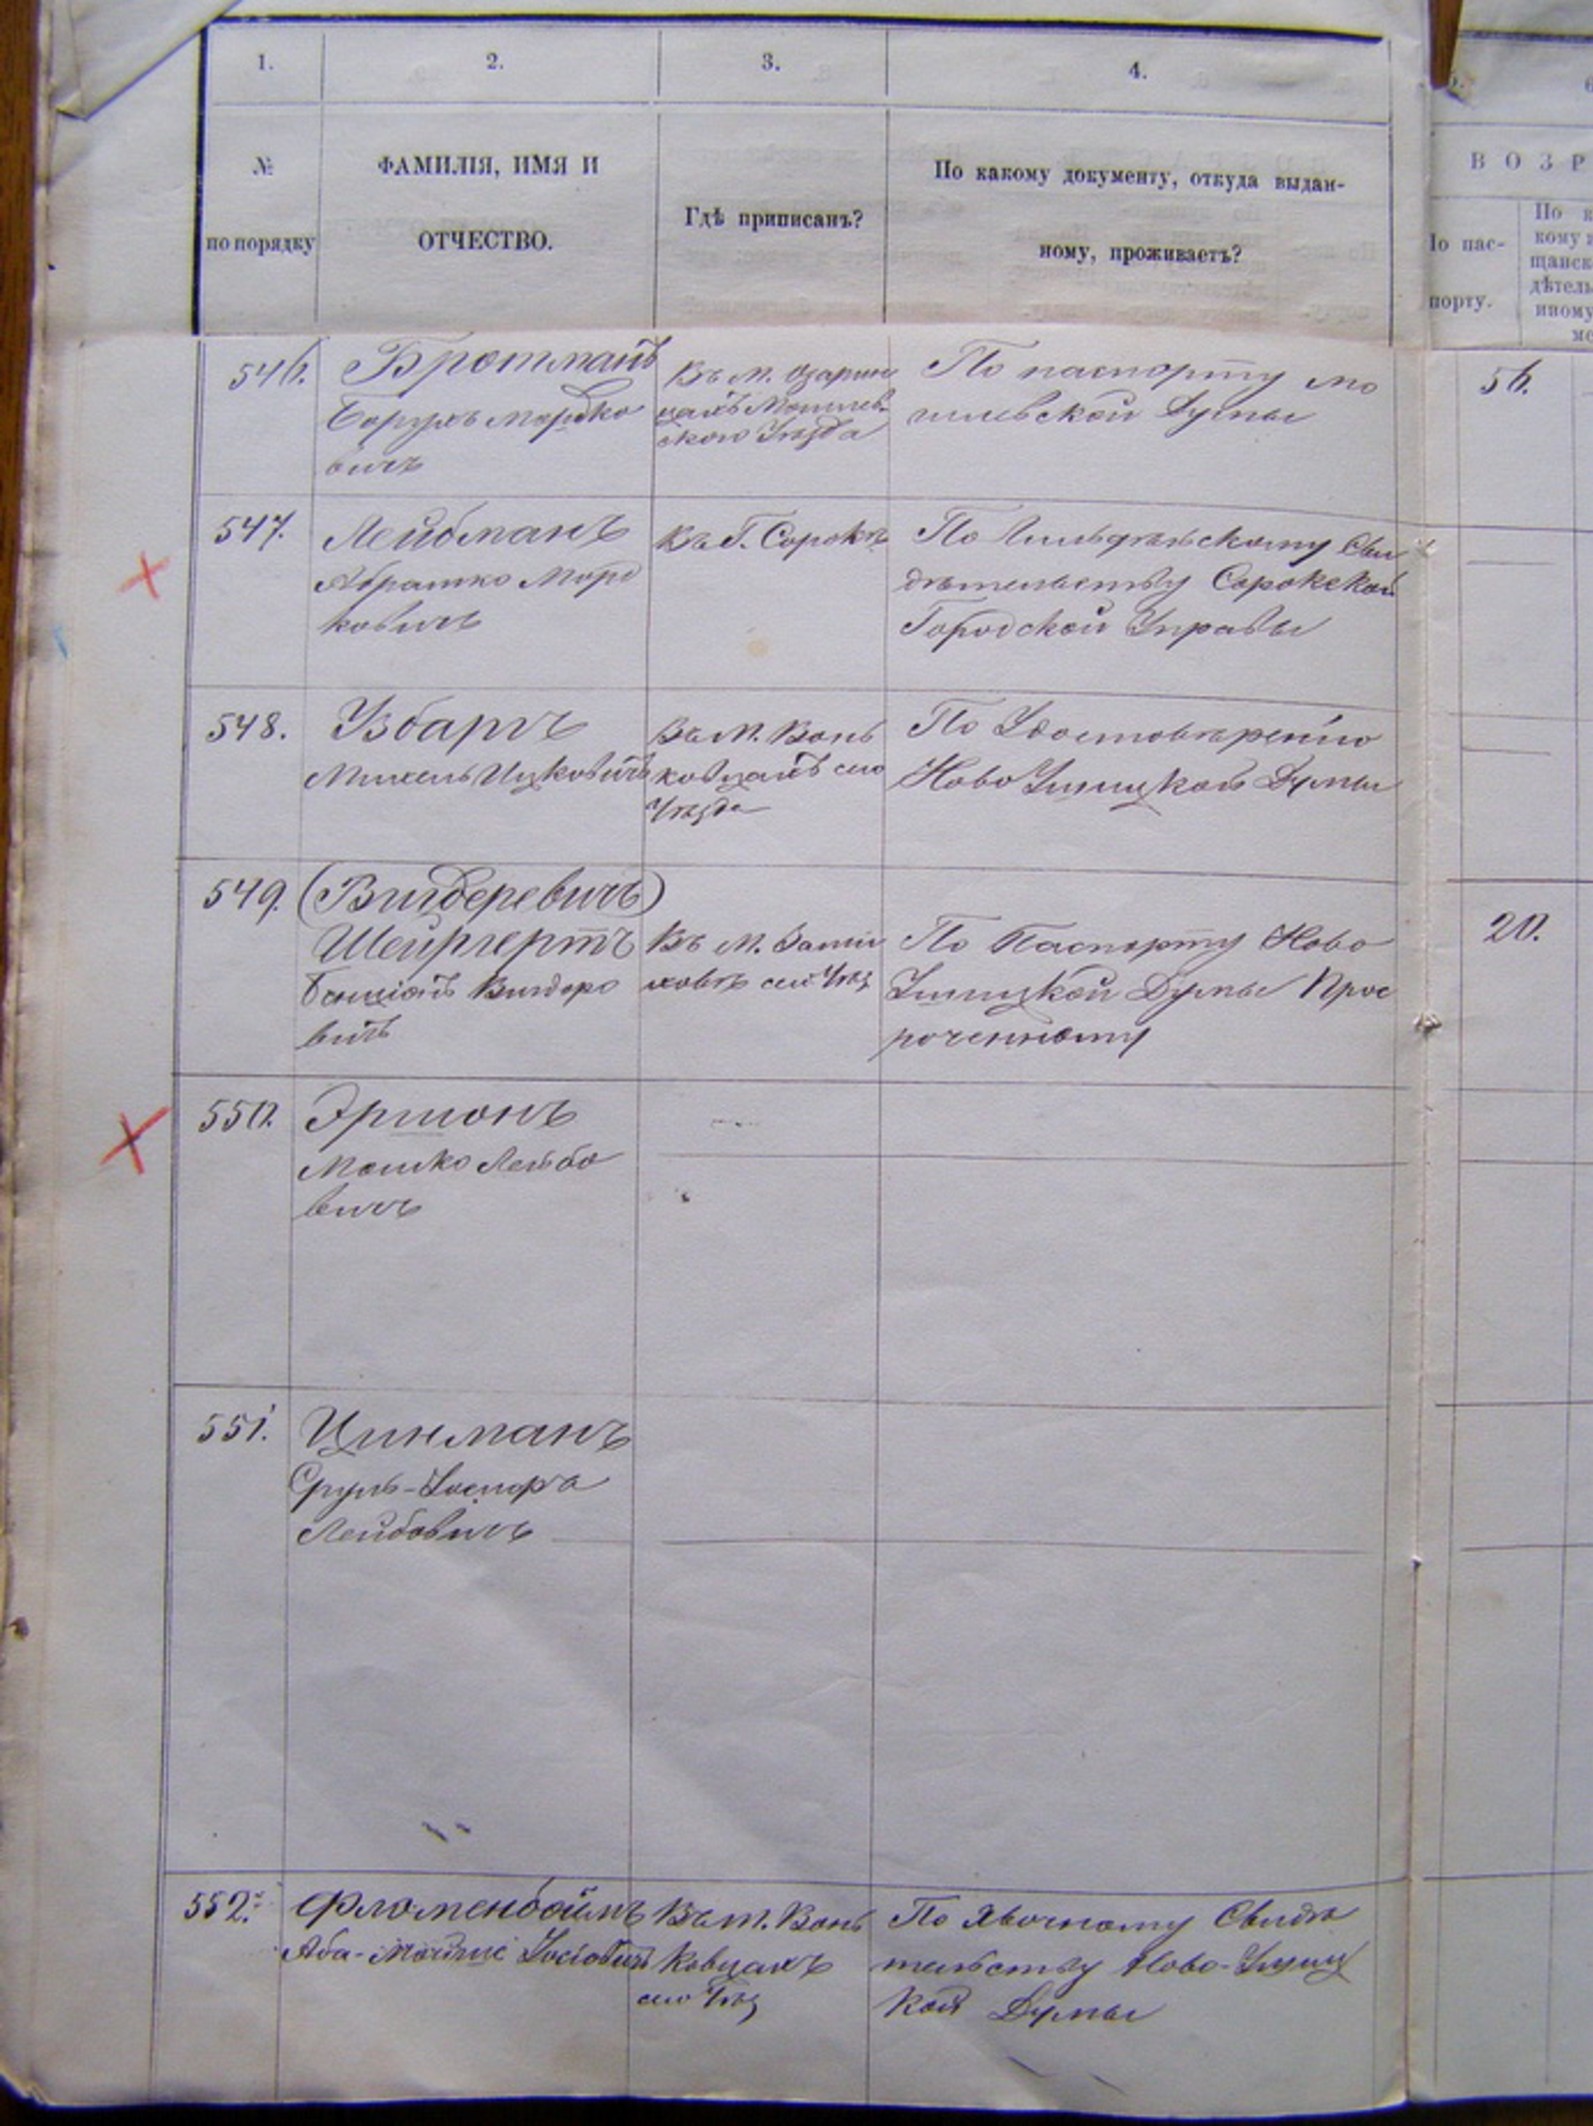 1. 2. 3. 4.
№
по порядку
ФАМИЛІЯ, ИМЯ И
ОТЧЕСТВО.
Гдѣ приписанъ?
По какому документу, откуда выдан-
ному, проживаетъ?
ВОЗР
По пас-
порту.
По к
кому
щанск
дѣтель
иному
546.
Бротманъ
Борухъ Мордко
вичъ
Въ м. Озарин
цахъ Могилев
скаго Уѣзда
По паспорту мо
гилевской Думы
56.
547.
Лейбманъ
Абрашко Морд
ковичъ
Въ Г. Сорокѣ
По Гильдѣйскому Сви
дѣтельству Сорокской
Городской Управы
548.
Узбаръ
Михель Ицковичъ
Въ М. Вонь
ковцахъ сего
Уѣзда
По Удостовѣренію
Ново Ушицкой Думы
549.
(Вигдеревичъ)
Шейргертъ
Бенціонъ Вигдоро
вичъ
Въ М. Замѣ
ховѣ сего Уѣз
По Паспорту Ново
Ушицкой Думы Прос
роченному
20.
550.
Эршонъ
Мошко Лейбо
вичъ
551.
Цинманъ
Сруль-
Лейбовичъ
552.
Фломенбоймъ
Аба-
Въ м. Вонь
ковцахъ
сего Уѣз
По Явочному Свидѣ
тельству Ново-Ушиц
кой Думы